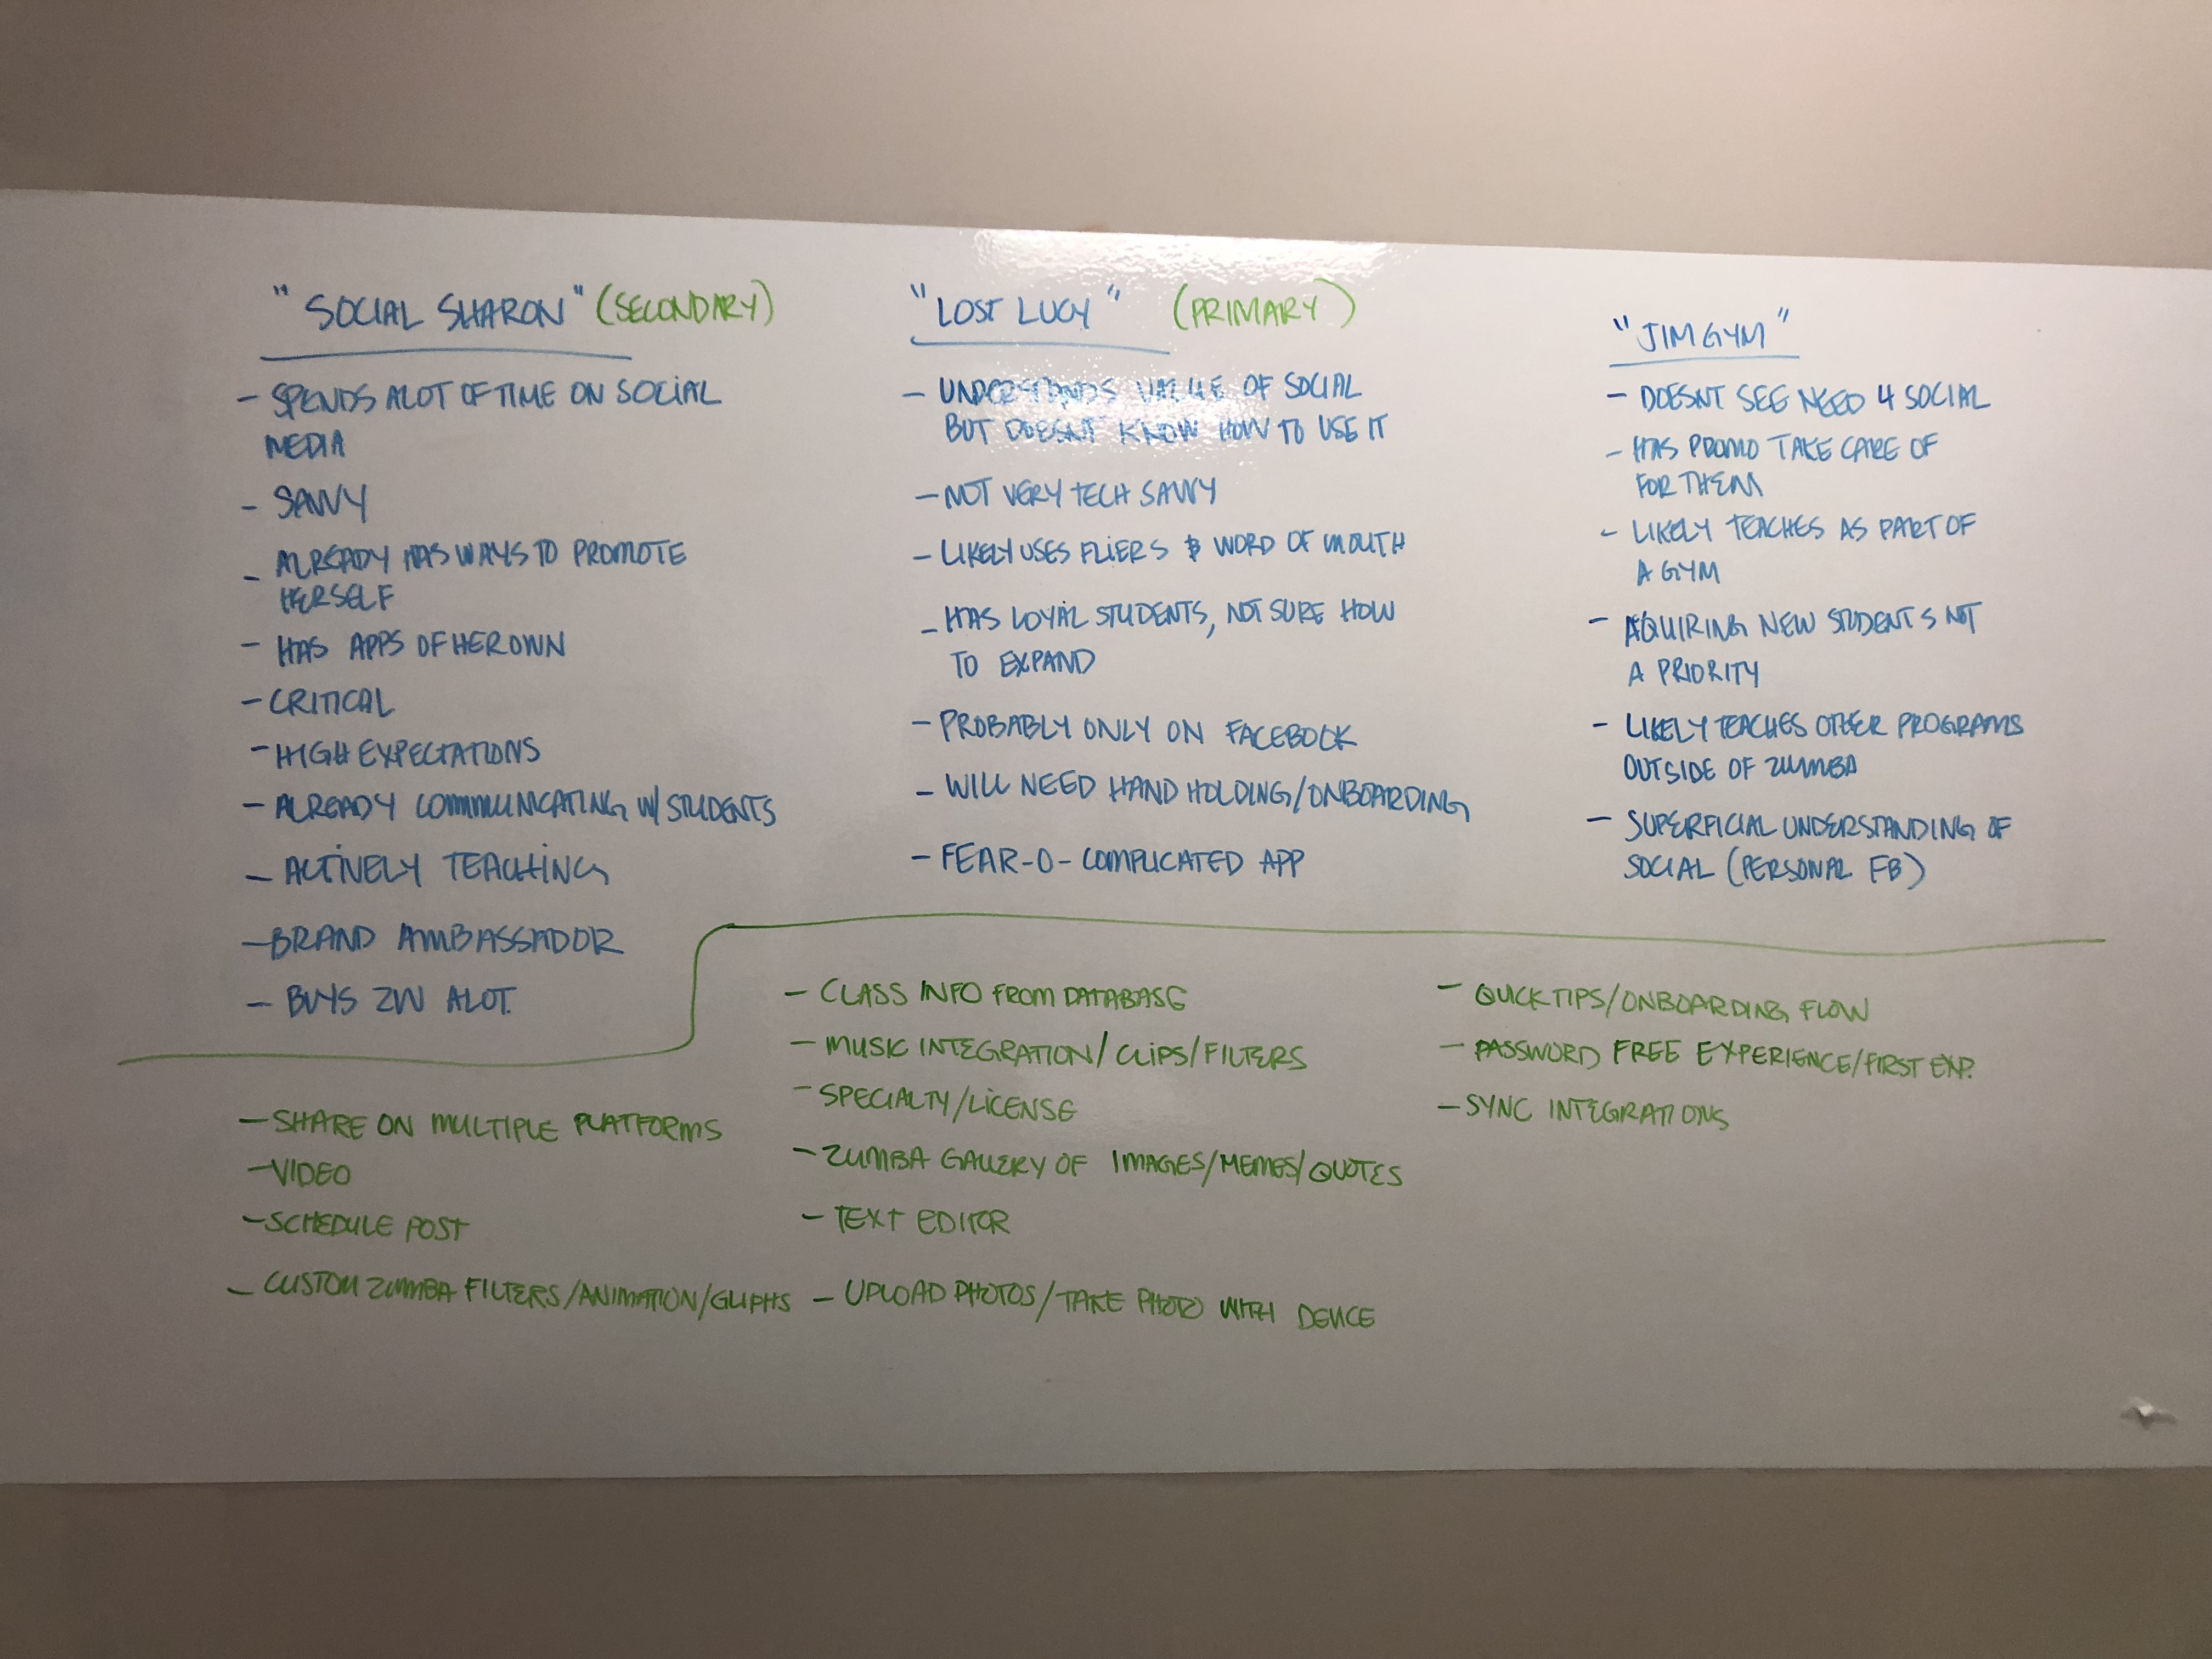 "SOCIAL SHARON" (SECONDARY)
- SPENDS ALOT OF TIME ON SOCIAL
MEDIA
- SAVVY
- ALREADY HAS WAYS TO PROMOTE
HERSELF
- HAS APPS OF HER OWN
- CRITICAL
- HIGH EXPECTATIONS
- ALREADY COMMUNICATING W/ STUDENTS
- ACTIVELY TEACHING
- BRAND AMBASSADOR
- BUYS ZW ALOT.
"LOST LUCY" (PRIMARY)
- UNDERSTANDS VALUE OF SOCIAL
BUT DOESNT KNOW HOW TO USE IT
- NOT VERY TECH SAVVY
- LIKELY USES FLIERS & WORD OF MOUTH
- HAS LOYAL STUDENTS, NOT SURE HOW
TO EXPAND
- PROBABLY ONLY ON FACEBOOK
- WILL NEED HAND HOLDING/ONBOARDING
- FEAR-O-COMPLICATED APP
"JIM GYM"
- DOESNT SEE NEED 4 SOCIAL
- HAS PROMO TAKE CARE OF
FOR THEM
- LIKELY TEACHES AS PART OF
A GYM
- AQUIRING NEW STUDENTS NOT
A PRIORITY
- LIKELY TEACHES OTHER PROGRAMS
OUTSIDE OF ZUMBA
- SUPERFICIAL UNDERSTANDING OF
SOCIAL (PERSONAL FB)
- SHARE ON MULTIPLE PLATFORMS
- VIDEO
- SCHEDULE POST
- CUSTOM ZUMBA FILTERS/ANIMATION/GLIPHS
- CLASS INFO FROM DATABASE
- MUSIC INTEGRATION/CLIPS/FILTERS
- SPECIALTY/LICENSE
- ZUMBA GALLERY OF IMAGES/MEMES/QUOTES
- TEXT EDITOR
- UPLOAD PHOTOS/TAKE PHOTO WITH DEVICE
- QUICK TIPS/ONBOARDING FLOW
- PASSWORD FREE EXPERIENCE/FIRST EXP.
- SYNC INTEGRATIONS